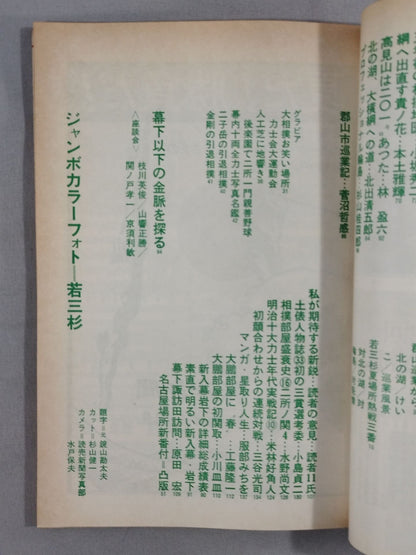 綱へ出直す貴ノ花…本土雅輝 70
高見山は二〇一。あった…林 盈六 82
北の湖、大横綱への道…北出清五郎 64
郡山市巡業記…菅沼哲感 86
グラビア
大相撲お笑い場所 31
力士会大運動会
人工芝に地響き 36
後楽園で二所一門親善野球
幕内十両全力士写真名鑑 42
二子岳の引退相撲 40
金剛の引退相撲 41
幕下以下の金脈を探る 94
〈座談会〉
枝川英俊/山響正勝/
関ノ戸孝一/京須利敏
ジャンボカラーフォト―若三杉
北の湖、けい
こ/巡業風景
若三杉夏場所熱戦三番
対北の湖、対
私が期待する新説…読者の意見…読者11氏
土俵人物誌㉝初の三賞選考委…小島貞二
相撲部屋盛衰史⑯二所ノ関4…水野尚文
明治十大力士年代実戦記⑩…米林好角人
初顔合わせからの連続対戦…三谷光司
マンガ・星取り人生…服部みちを
大鵬部屋に 春…工藤隆一
大鵬部屋の初関取…小川皿皿
新入幕岩下の詳細総成績表
素直で明るい新入幕・岩下
幕下諏訪田訪問…原田 宏
名古屋場所新番付=凸版
題字=元 鏡山勘太夫
カット=杉山健一
カメラ=読売新聞写真部
水戸保夫